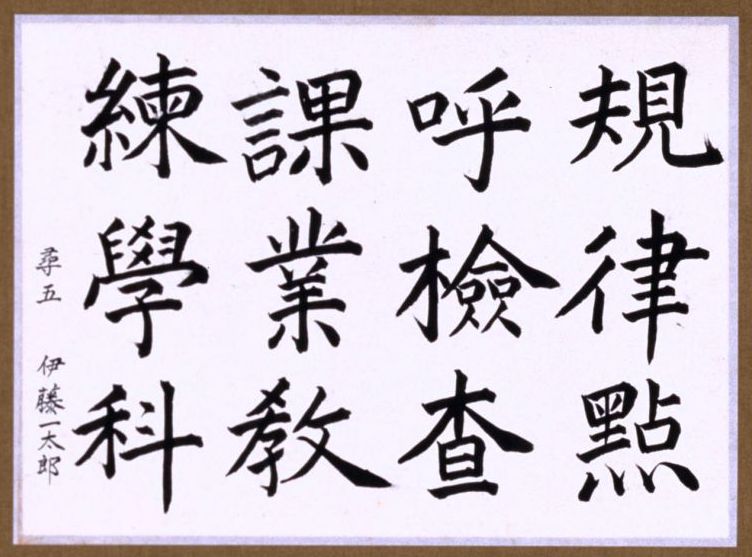 規律點
呼檢查
課業教
練學科
尋五 伊藤一太郎